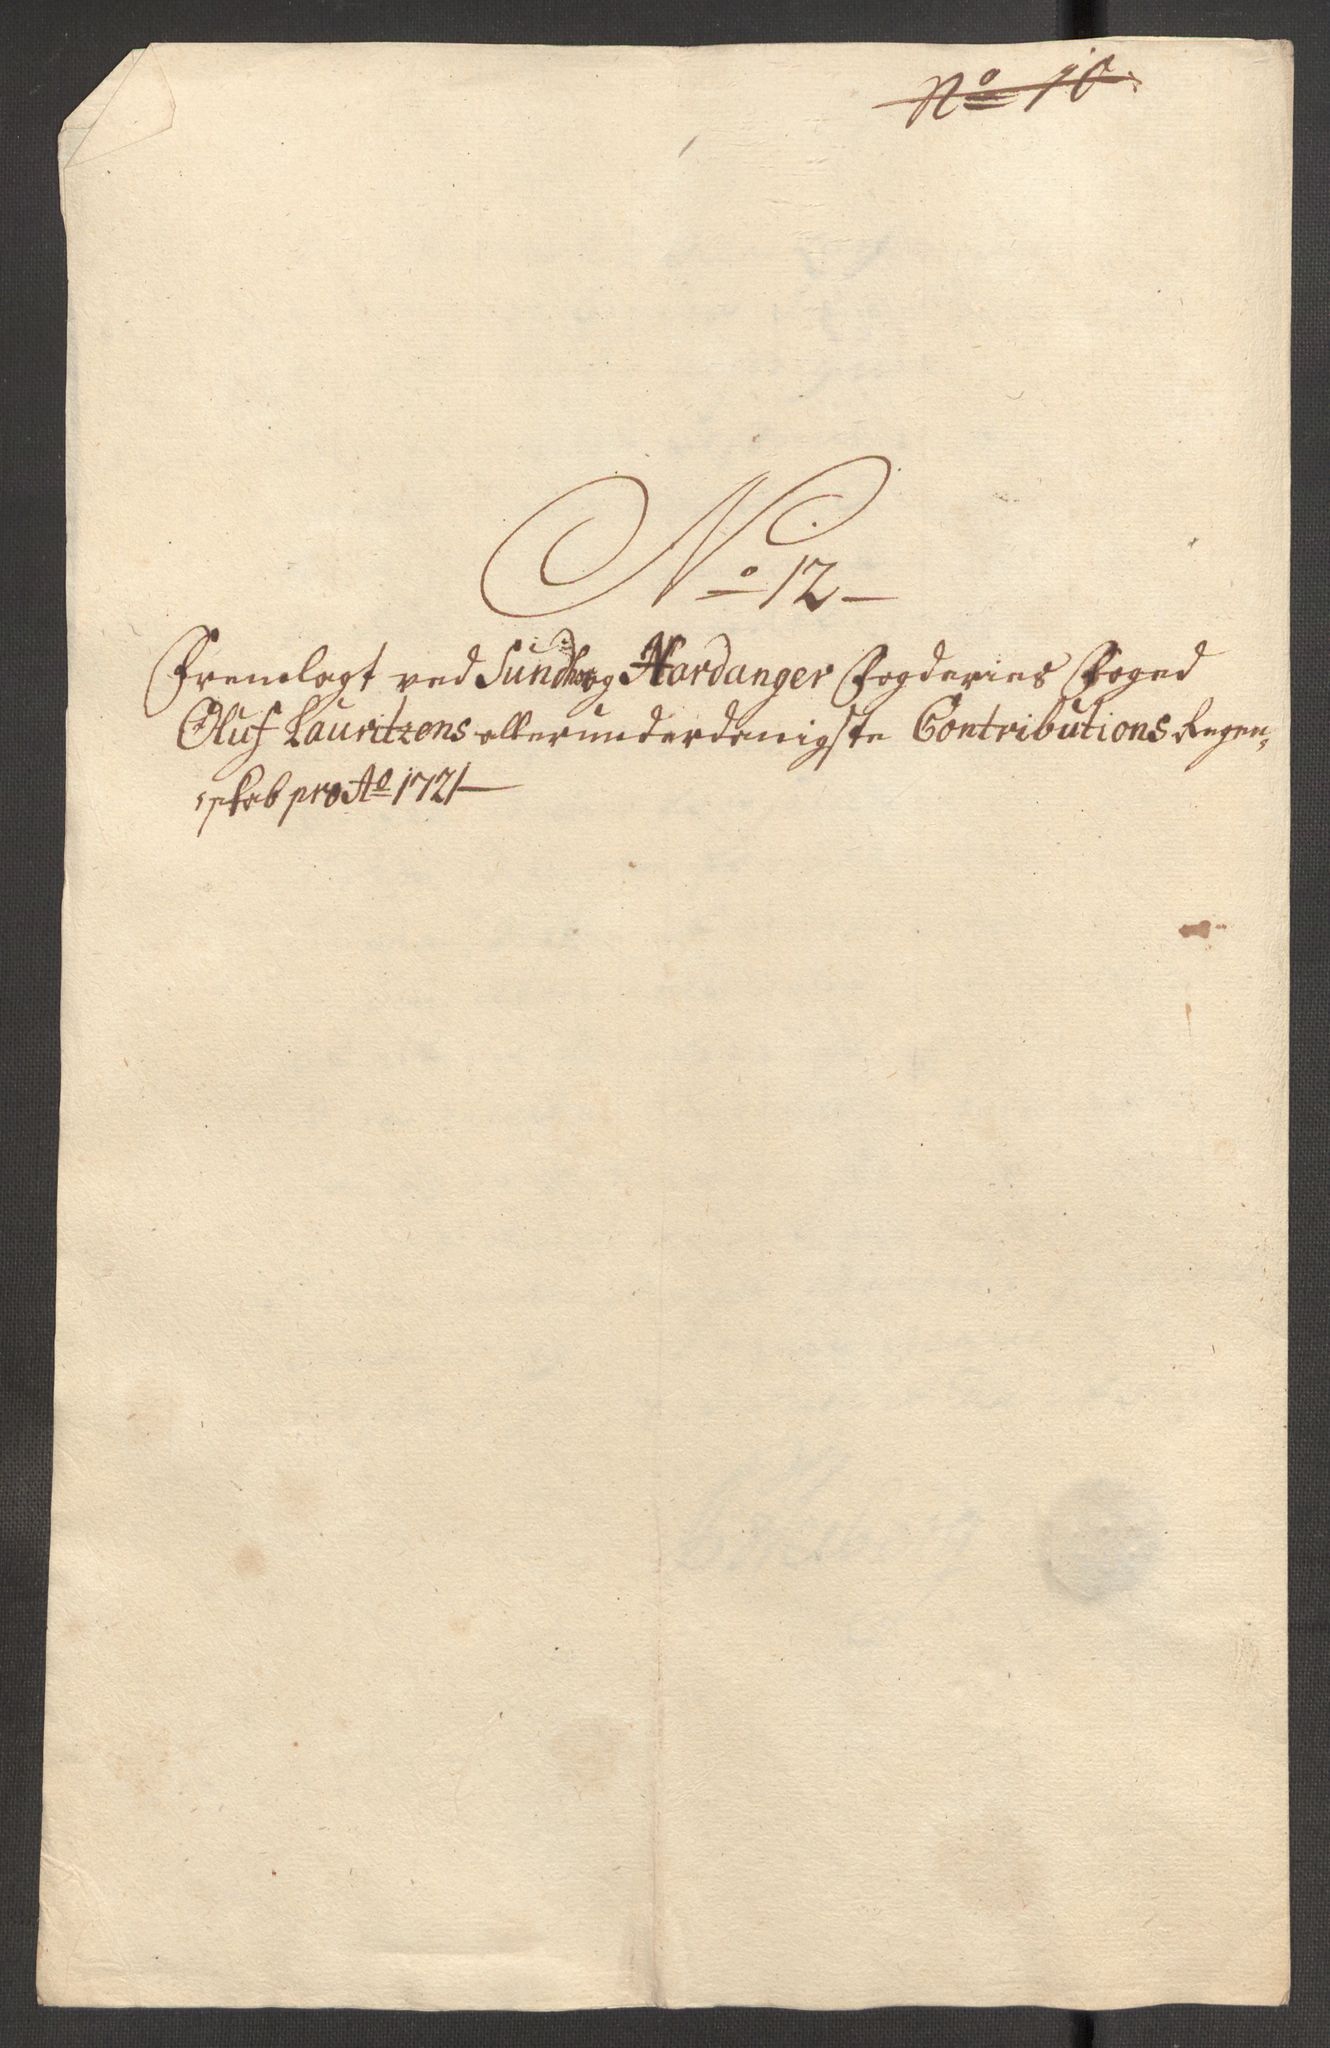 No 10.
No 12
Fremlagt ved Sundh: og Hardanger Fogderies Foged
Oluf Lauritzens allerunderdanigste Contributions Regen-
skab pro Ao 1721